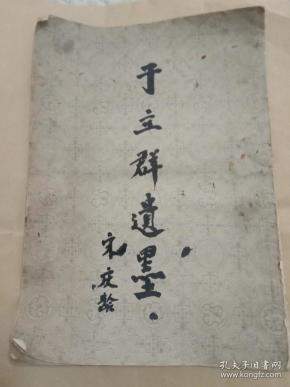 于立群遺墨
宋庆龄
孔夫子旧书网